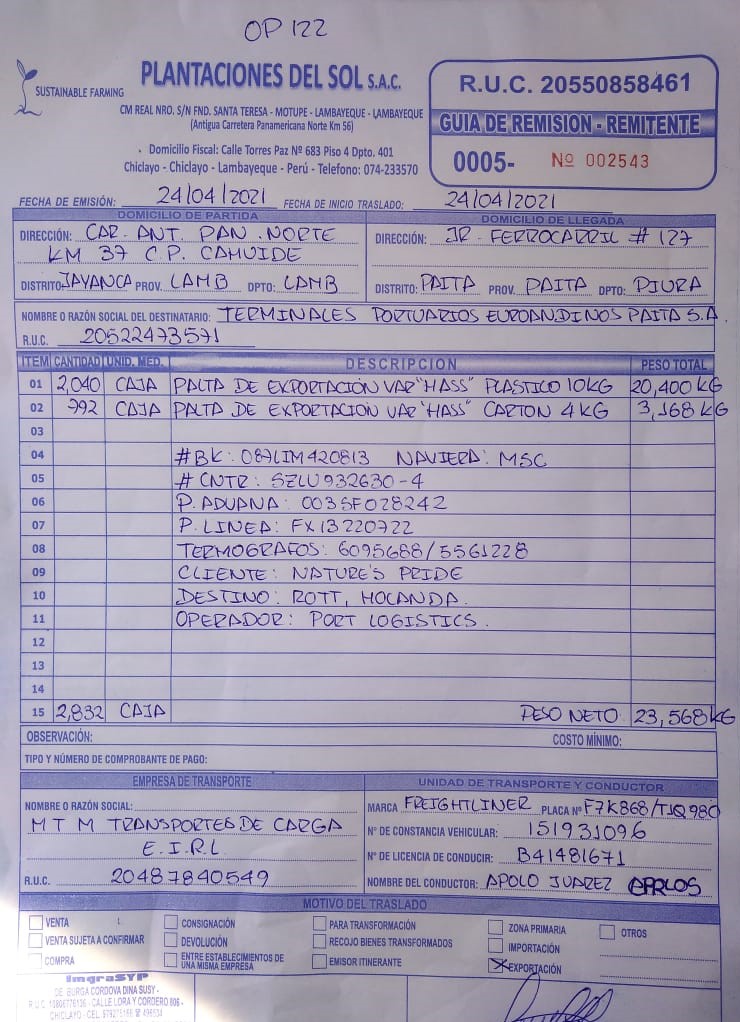 OP 122
SUSTAINABLE FARMING
PLANTACIONES DEL SOL S.A.C.
CM REAL NRO. S/N FND. SANTA TERESA - MOTUPE - LAMBAYEQUE - LAMBAYEQUE
(Antigua Carretera Panamericana Norte Km 56)
Domicilio Fiscal: Calle Torres Paz Nº 683 Piso 4 Dpto. 401
Chiclayo - Chiclayo - Lambayeque - Perú - Telefono: 074-233570
R.U.C. 20550858461
GUIA DE REMISION - REMITENTE
0005- Nº 002543
FECHA DE EMISIÓN: 24/04/2021 FECHA DE INICIO TRASLADO: 24/04/2021
DOMICILIO DE PARTIDA
DIRECCIÓN: CAR. ANT. PAN. NORTE
KM 37 C.P. CAHUIDE
DISTRITO: JAYANCA PROV. LAMB DPTO: LAMB
DOMICILIO DE LLEGADA
DIRECCIÓN: JR. FERROCARRIL # 127
DISTRITO: PAITA PROV. PAITA DPTO: PIURA
NOMBRE O RAZÓN SOCIAL DEL DESTINATARIO: TERMINALES PORTUARIOS EUROANDINOS PAITA S.A.
R.U.C. 20522473571
ITEM CANTIDAD UNID. MED. DESCRIPCION PESO TOTAL
01 2,040 CAJA PALTA DE EXPORTACIÓN VAR "HASS" PLASTICO 10KG 20,400 KG
02 792 CAJA PALTA DE EXPORTACIÓN VAR "HASS" CARTON 4 KG 3,168 KG
03
04 #BK: 087LIM420813 NAVIERA: MSC
05 # CNTR: SZLU932630-4
06 P. ADUANA: 003SF028242
07 P. LINEA: FX13220722
08 TERMOGRAFOS: 6095688/5561228
09 CLIENTE: NATURE'S PRIDE
10 DESTINO: ROTT, HOLANDA.
11 OPERADOR: PORT LOGISTICS.
12
13
14
15 2,832 CAJA PESO NETO 23,568 KG
OBSERVACIÓN: COSTO MÍNIMO:
TIPO Y NÚMERO DE COMPROBANTE DE PAGO:
EMPRESA DE TRANSPORTE
NOMBRE O RAZÓN SOCIAL:
MTM TRANSPORTES DE CARGA
E.I.R.L.
R.U.C. 20487840549
UNIDAD DE TRANSPORTE Y CONDUCTOR
MARCA FREIGHTLINER PLACA Nº F7K868/TJQ980
Nº DE CONSTANCIA VEHICULAR: 151931096
Nº DE LICENCIA DE CONDUCIR: B41481671
NOMBRE DEL CONDUCTOR: APOLO JUAREZ CARLOS
MOTIVO DEL TRASLADO
VENTA
VENTA SUJETA A CONFIRMAR
COMPRA
CONSIGNACIÓN
DEVOLUCIÓN
ENTRE ESTABLECIMIENTOS DE
UNA MISMA EMPRESA
PARA TRANSFORMACIÓN
RECOJO BIENES TRANSFORMADOS
EMISOR ITINERANTE
ZONA PRIMARIA
IMPORTACIÓN
EXPORTACIÓN
OTROS
ImgraSYP
DE. BURGA CORDOVA DINA SUSY -
CALLE LORA Y CORDERO 806 -
CHICLAYO - CEL.